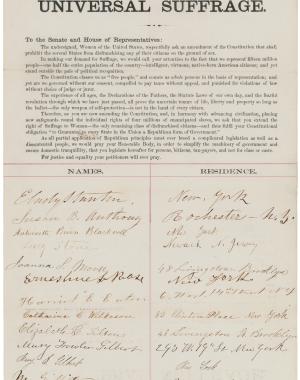 UNIVERSAL SUFFRAGE.
To the Senate and House of Representatives:
The undersigned, Women of the United States, respectfully ask an amendment of the Constitution that shall
prohibit the several States from disfranchising any of their citizens on the ground of sex.
In making our demand for Suffrage, we would call your attention to the fact that we represent fifteen million
people—one half the entire population of the country—intelligent, virtuous, native-born American citizens; and yet
stand outside the pale of political recognition.
The Constitution classes us as "free people," and counts us whole persons in the basis of representation; and yet
are we governed without our consent, compelled to pay taxes without appeal, and punished for violations of law
without choice of judge or juror.
The experience of all ages, the Declarations of the Fathers, the Statute Laws of our own day, and the fearful
revolution through which we have just passed, all prove the uncertain tenure of life, liberty and property so long as
the ballot—the only weapon of self-protection—is not in the hand of every citizen.
Therefore, as you are now amending the Constitution, and, in harmony with advancing civilization, placing
new safeguards round the individual rights of four millions of emancipated slaves, we ask that you extend the
right of Suffrage to Woman—the only remaining class of disfranchised citizens—and thus fulfil your Constitutional
obligation "to Guarantee to every State in the Union a Republican form of Government."
As all partial application of Republican principles must ever breed a complicated legislation as well as a
discontented people, we would pray your Honorable Body, in order to simplify the machinery of government and
ensure domestic tranquillity, that you legislate hereafter for persons, citizens, tax-payers, and not for class or caste.
For justice and equality your petitioners will ever pray.
NAMES. RESIDENCE.
E Cady Stanton New York
Susan B. Anthony Rochester - N.Y.
Antoinette Brown Blackwell New York
Lucy Stone Newark N. Jersey
Joanna S. Morse 48 Livingston Brooklyn
Ernestine L Rose New York
Harriet E. Eaton 6 West 14th Street N.Y
Catharine C Wilkeson 83 Clinton Place New York
Elizabeth R Tilton 48 Livingston St Brooklyn
Mary Fowler Gilbert 293 W 19th St New York
New York